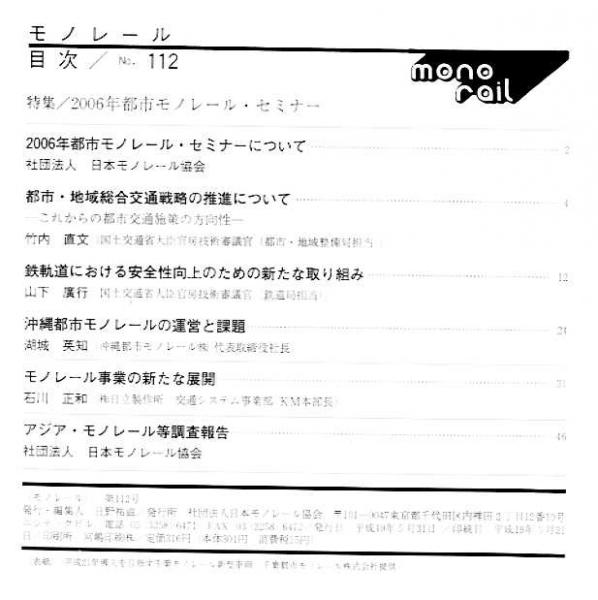 モノレール
目次／No. 112
mono
rail
特集／2006年都市モノレール・セミナー
2006年都市モノレール・セミナーについて 2
社団法人 日本モノレール協会
都市・地域総合交通戦略の推進について 4
―これからの都市交通施策の方向性―
竹内 直文（国土交通省大臣官房技術審議官（都市・地域整備局担当）
鉄軌道における安全性向上のための新たな取り組み 12
山下 廣行（国土交通省大臣官房技術審議官 鉄道局担当）
沖縄都市モノレールの運営と課題
湖城 英知（沖縄都市モノレール㈱ 代表取締役社長
モノレール事業の新たな展開
石川 正和（㈱日立製作所 交通システム事業部 KM本部長）
アジア・モノレール等調査報告 46
社団法人 日本モノレール協会
（モノレール） 第112号
発行・編集人 日野祐滋 発行所 社団法人日本モノレール協会 〒101-0047東京都千代田区内神田2丁目12番10号
電話 FAX 発行日 平成19年5月31日
定価316円 本体301円 消費税15円